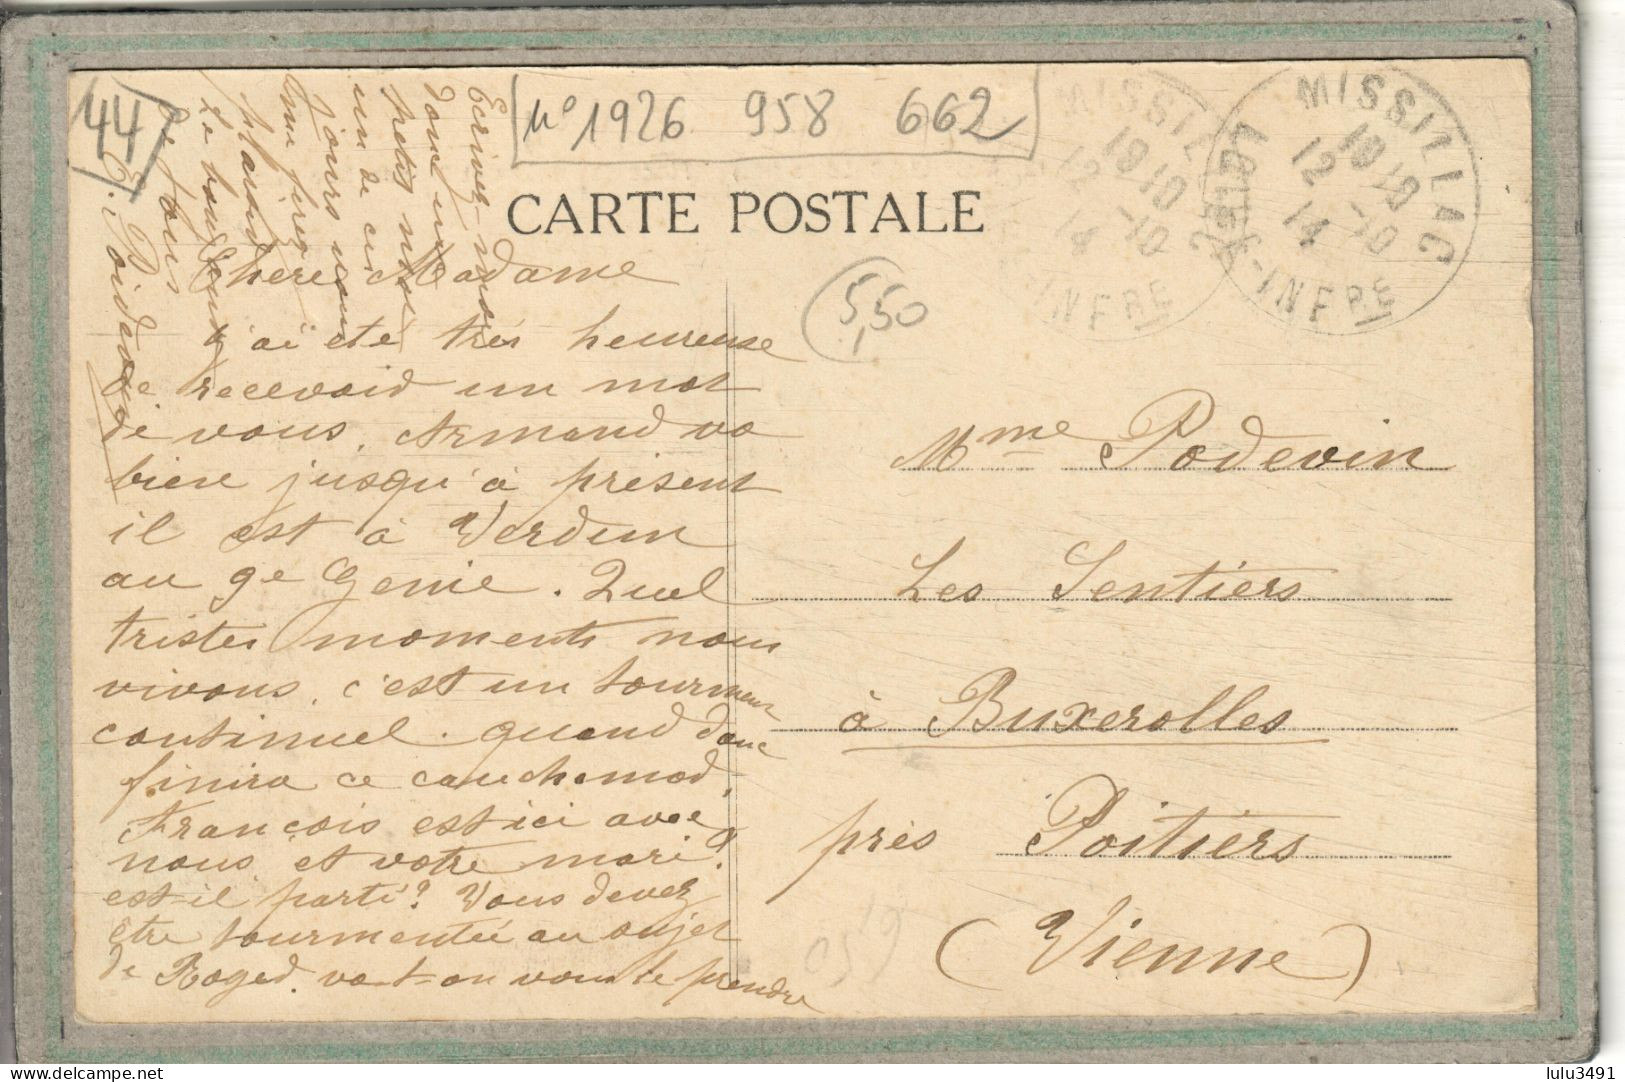 44
N° 1926 958 662
CARTE POSTALE
MISSILLAC
18 10
12 - 10
14
INFRE
MISSILLAC
18 10
12 - 10
14
LOIRE-INFRE
5,50
Chere Madame
j'ai ete très heureuse
de recevoid un mot
de vous. Armand va
bien jusqu'à présent
il est à Verdun
au 9e Genie. Quel
tristes moments nous
vivons. c'est un tourment
continuel. quand donc
finira ce cauchemad,
François est ici avec
nous. et votre mari?
est-il parti? Vous devez
être tourmentée au sujet
de Roged. va-t-on vous le prendre
Ecrivez-nous
donc un
petit mot
un de ces
jours vous
me ferez
plaisir
de bons
Mme Podevin
Les Sentiers
à Buxerolles
près Poitiers
(Vienne)
lulu3491